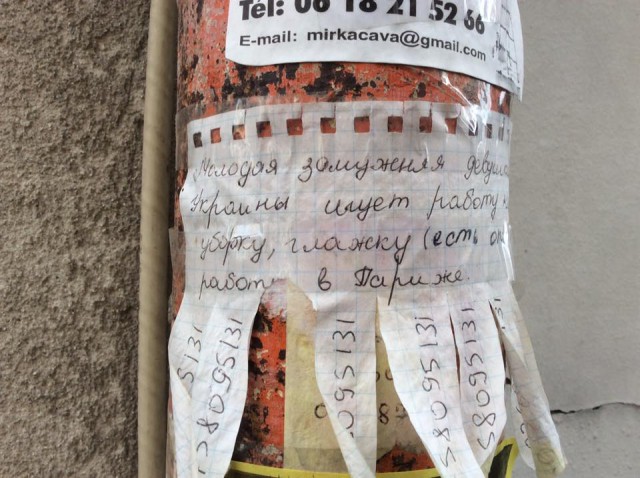 Tél: 06 18 21 52 66
E-mail: mirkacava@gmail.com
Молодая замужняя
Украины ищет работу
уборку, глажку (есть
в Париже.
5131
58095131
095131
58095131
58095131